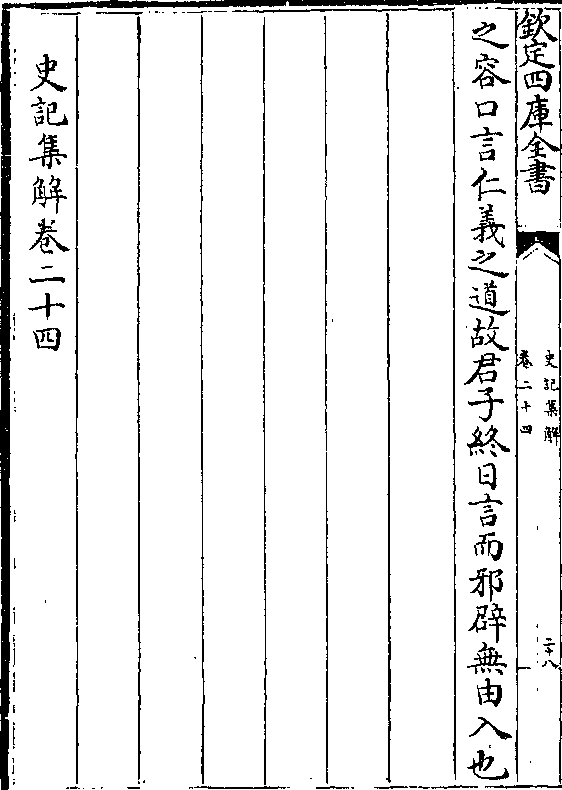 欽定四庫全書
史記集解
卷二十四
二十八
之容口言仁義之道故君子終日言而邪辟無由入也
史記集解卷二十四